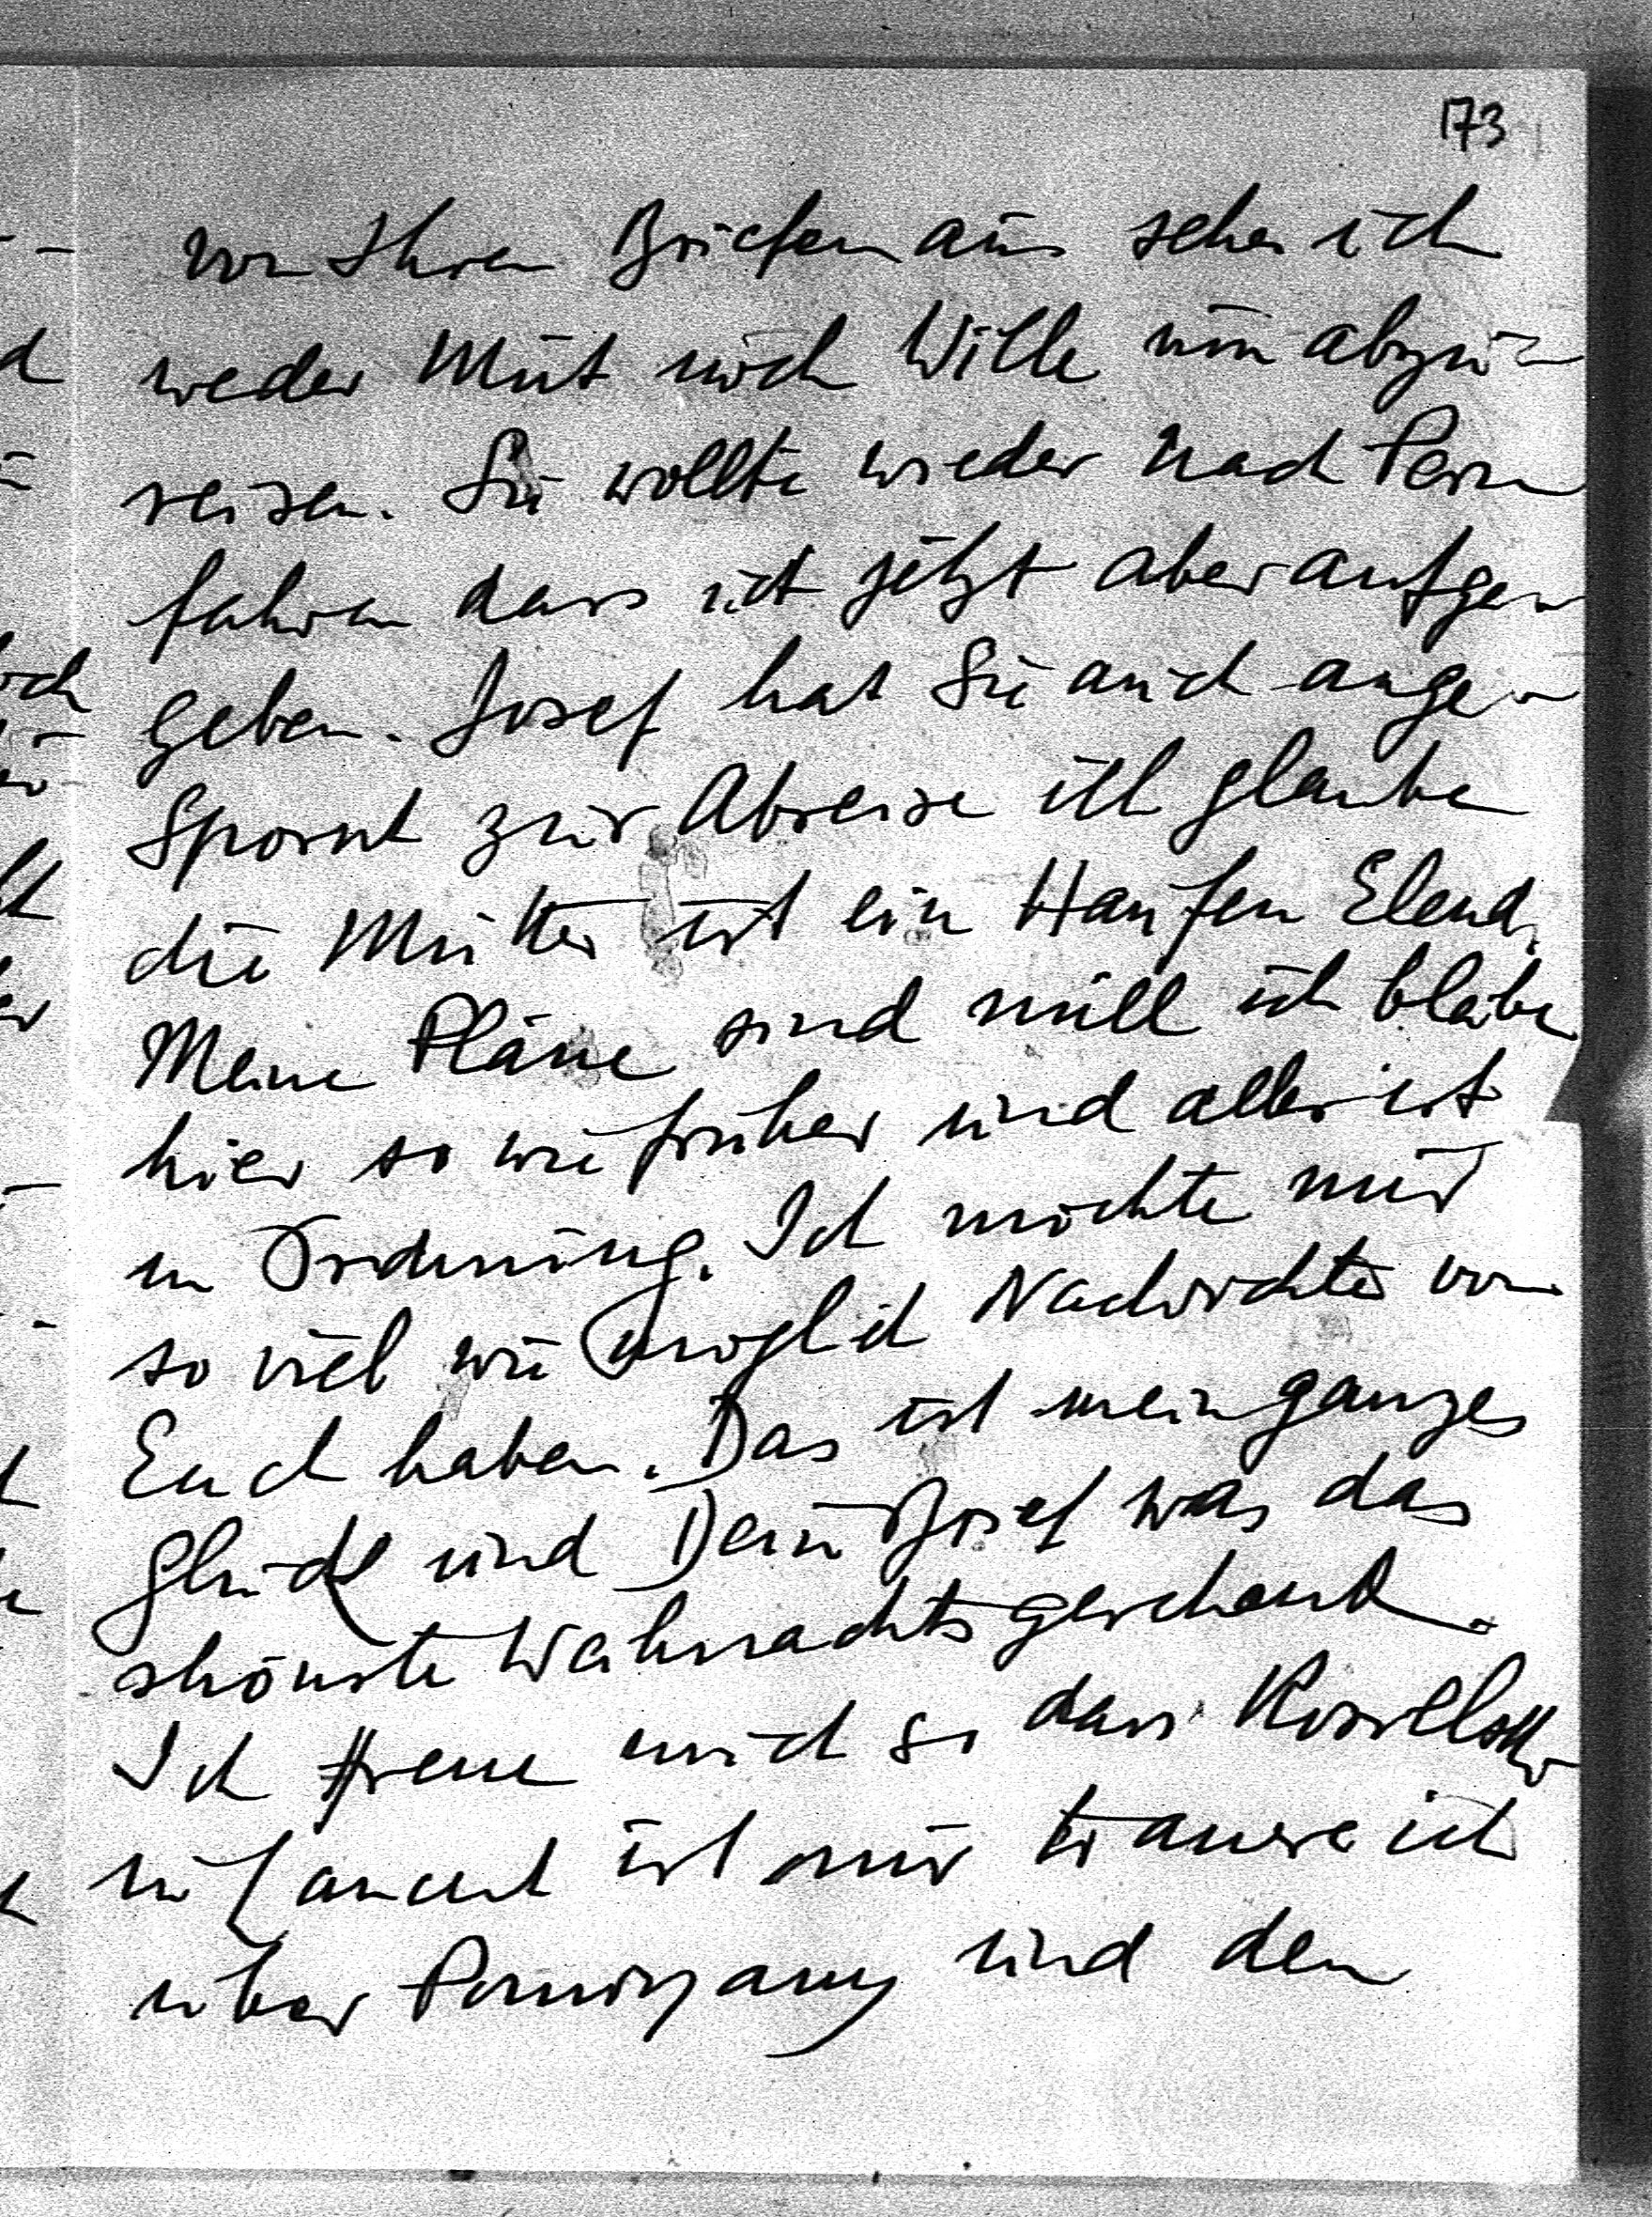 173
von Ihren Briefen aus sehe ich
weder Mut noch Wille um abzu-
reisen. Sie wollte wieder nach
fahren dass ist jetzt aber aufge-
geben. Josef hat Sie auch ange-
spornt zur Abreise ich glaube
die Mutter ist ein Haufen Elend.
Meine Pläne sind null ich bleibe
hier so wie früher und alles ist
in Ordnung. Ich möchte nur
so viel wie möglich Nachrichten von
Euch haben. Das ist mein ganzes
Glück und Dein Brief was das
shönste Weihnachtsgeschenk.
Ich freue mich so dass
ist nur trauere ich
über und den